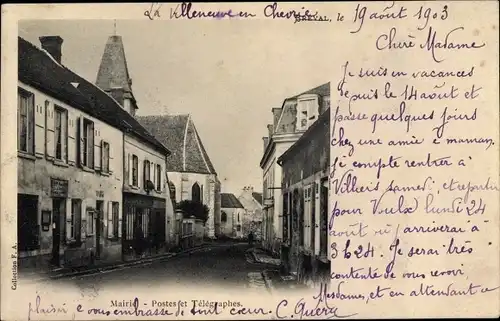 La Villeneuve en Chevrie
BRÉVAL, le 19 août 1903
Chère Madame
Je suis en vacances
depuis le 14 août et
passe quelques jours
chez une amie à maman.
je compte rentrer à
Villiers samedi, et repartir
pour Voulx lundi 24
où j'arriverai à
3h24. Je serai très
contente de vous revoir,
Mesdames, et en attendant ce
plaisir, je vous embrasse de tout cœur. C.
Mairie - Postes et Télégraphes.
Collection F. A.